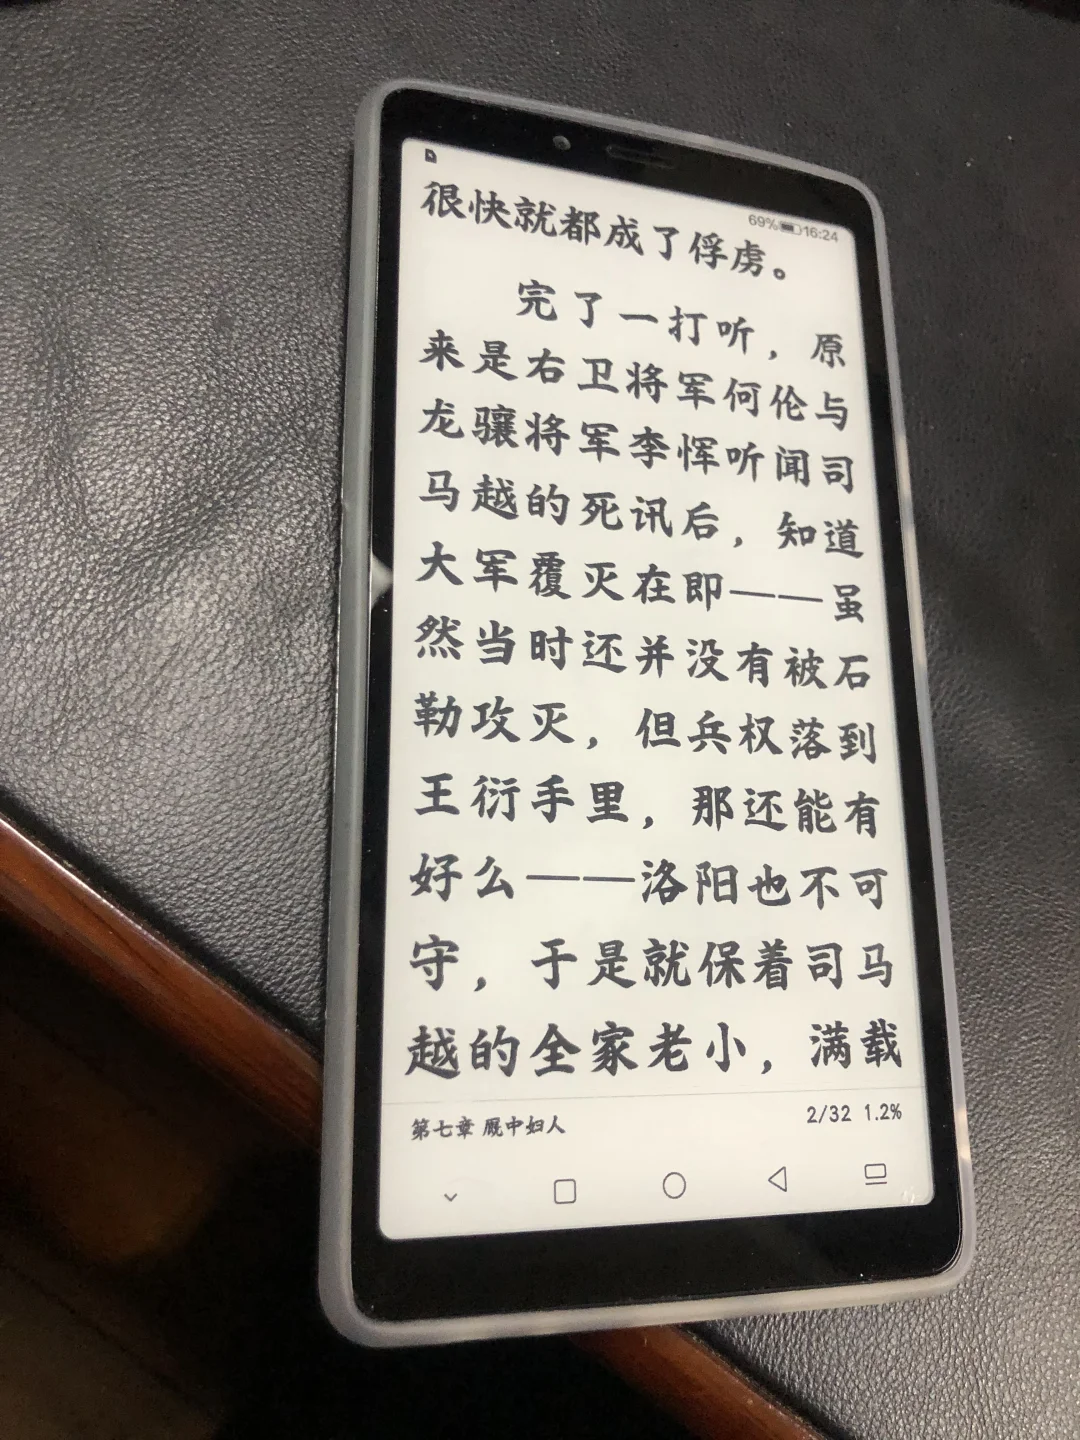 69% 16:24
很快就都成了俘虏。
完了一打听，原
来是右卫将军何伦与
龙骧将军李恽听闻司
马越的死讯后，知道
大军覆灭在即——虽
然当时还并没有被石
勒攻灭，但兵权落到
王衍手里，那还能有
好么——洛阳也不可
守，于是就保着司马
越的全家老小，满载
第七章 厩中妇人 2/32 1.2%